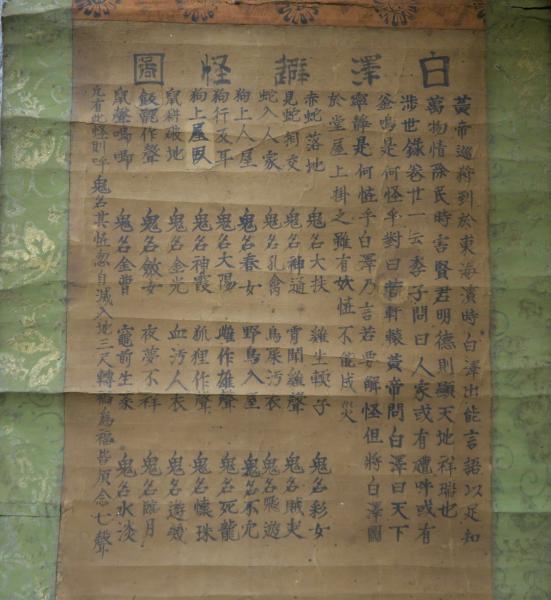 白澤辟怪圖
黃帝巡狩到於東海濱時白澤出能言語以足知
萬物情除民時害賢君明德則顯天地祥瑞也
涉世錄卷廿一云季子問曰人家或有禮呼或有
釜鳴是何怪乎對曰昔軒轅黃帝問白澤曰天下
寧靜是何恠乎白澤乃言若要辟怪但將白澤圖
於堂屋上掛之雖有妖恠不能成災
赤蛇落地 鬼名大扶 雞生軟子 鬼名彩女
見蛇相交 鬼名神通 宵聞雞聲 鬼名賊吏
蛇入人家 鬼名孔禽 鳥屎污衣 鬼名飛遊
狗上人屋 鬼名春女 野鳥入屋 鬼名不
狗行反耳 鬼名大陽 雌作雄聲 鬼名死龍
狗上屋臥 鬼名神霞 狐狸作聲 鬼名懷珠
鼠耕破地 鬼名金光 血污人衣 鬼名遊
飯甑作聲 鬼名斂女 夜夢不祥 鬼名臨月
鼠聲鳴唧 鬼名金曹 竈前生 鬼名水淡
凡有此怪則呼鬼名其恠忽自滅入地三尺轉禍為福皆須念七聲